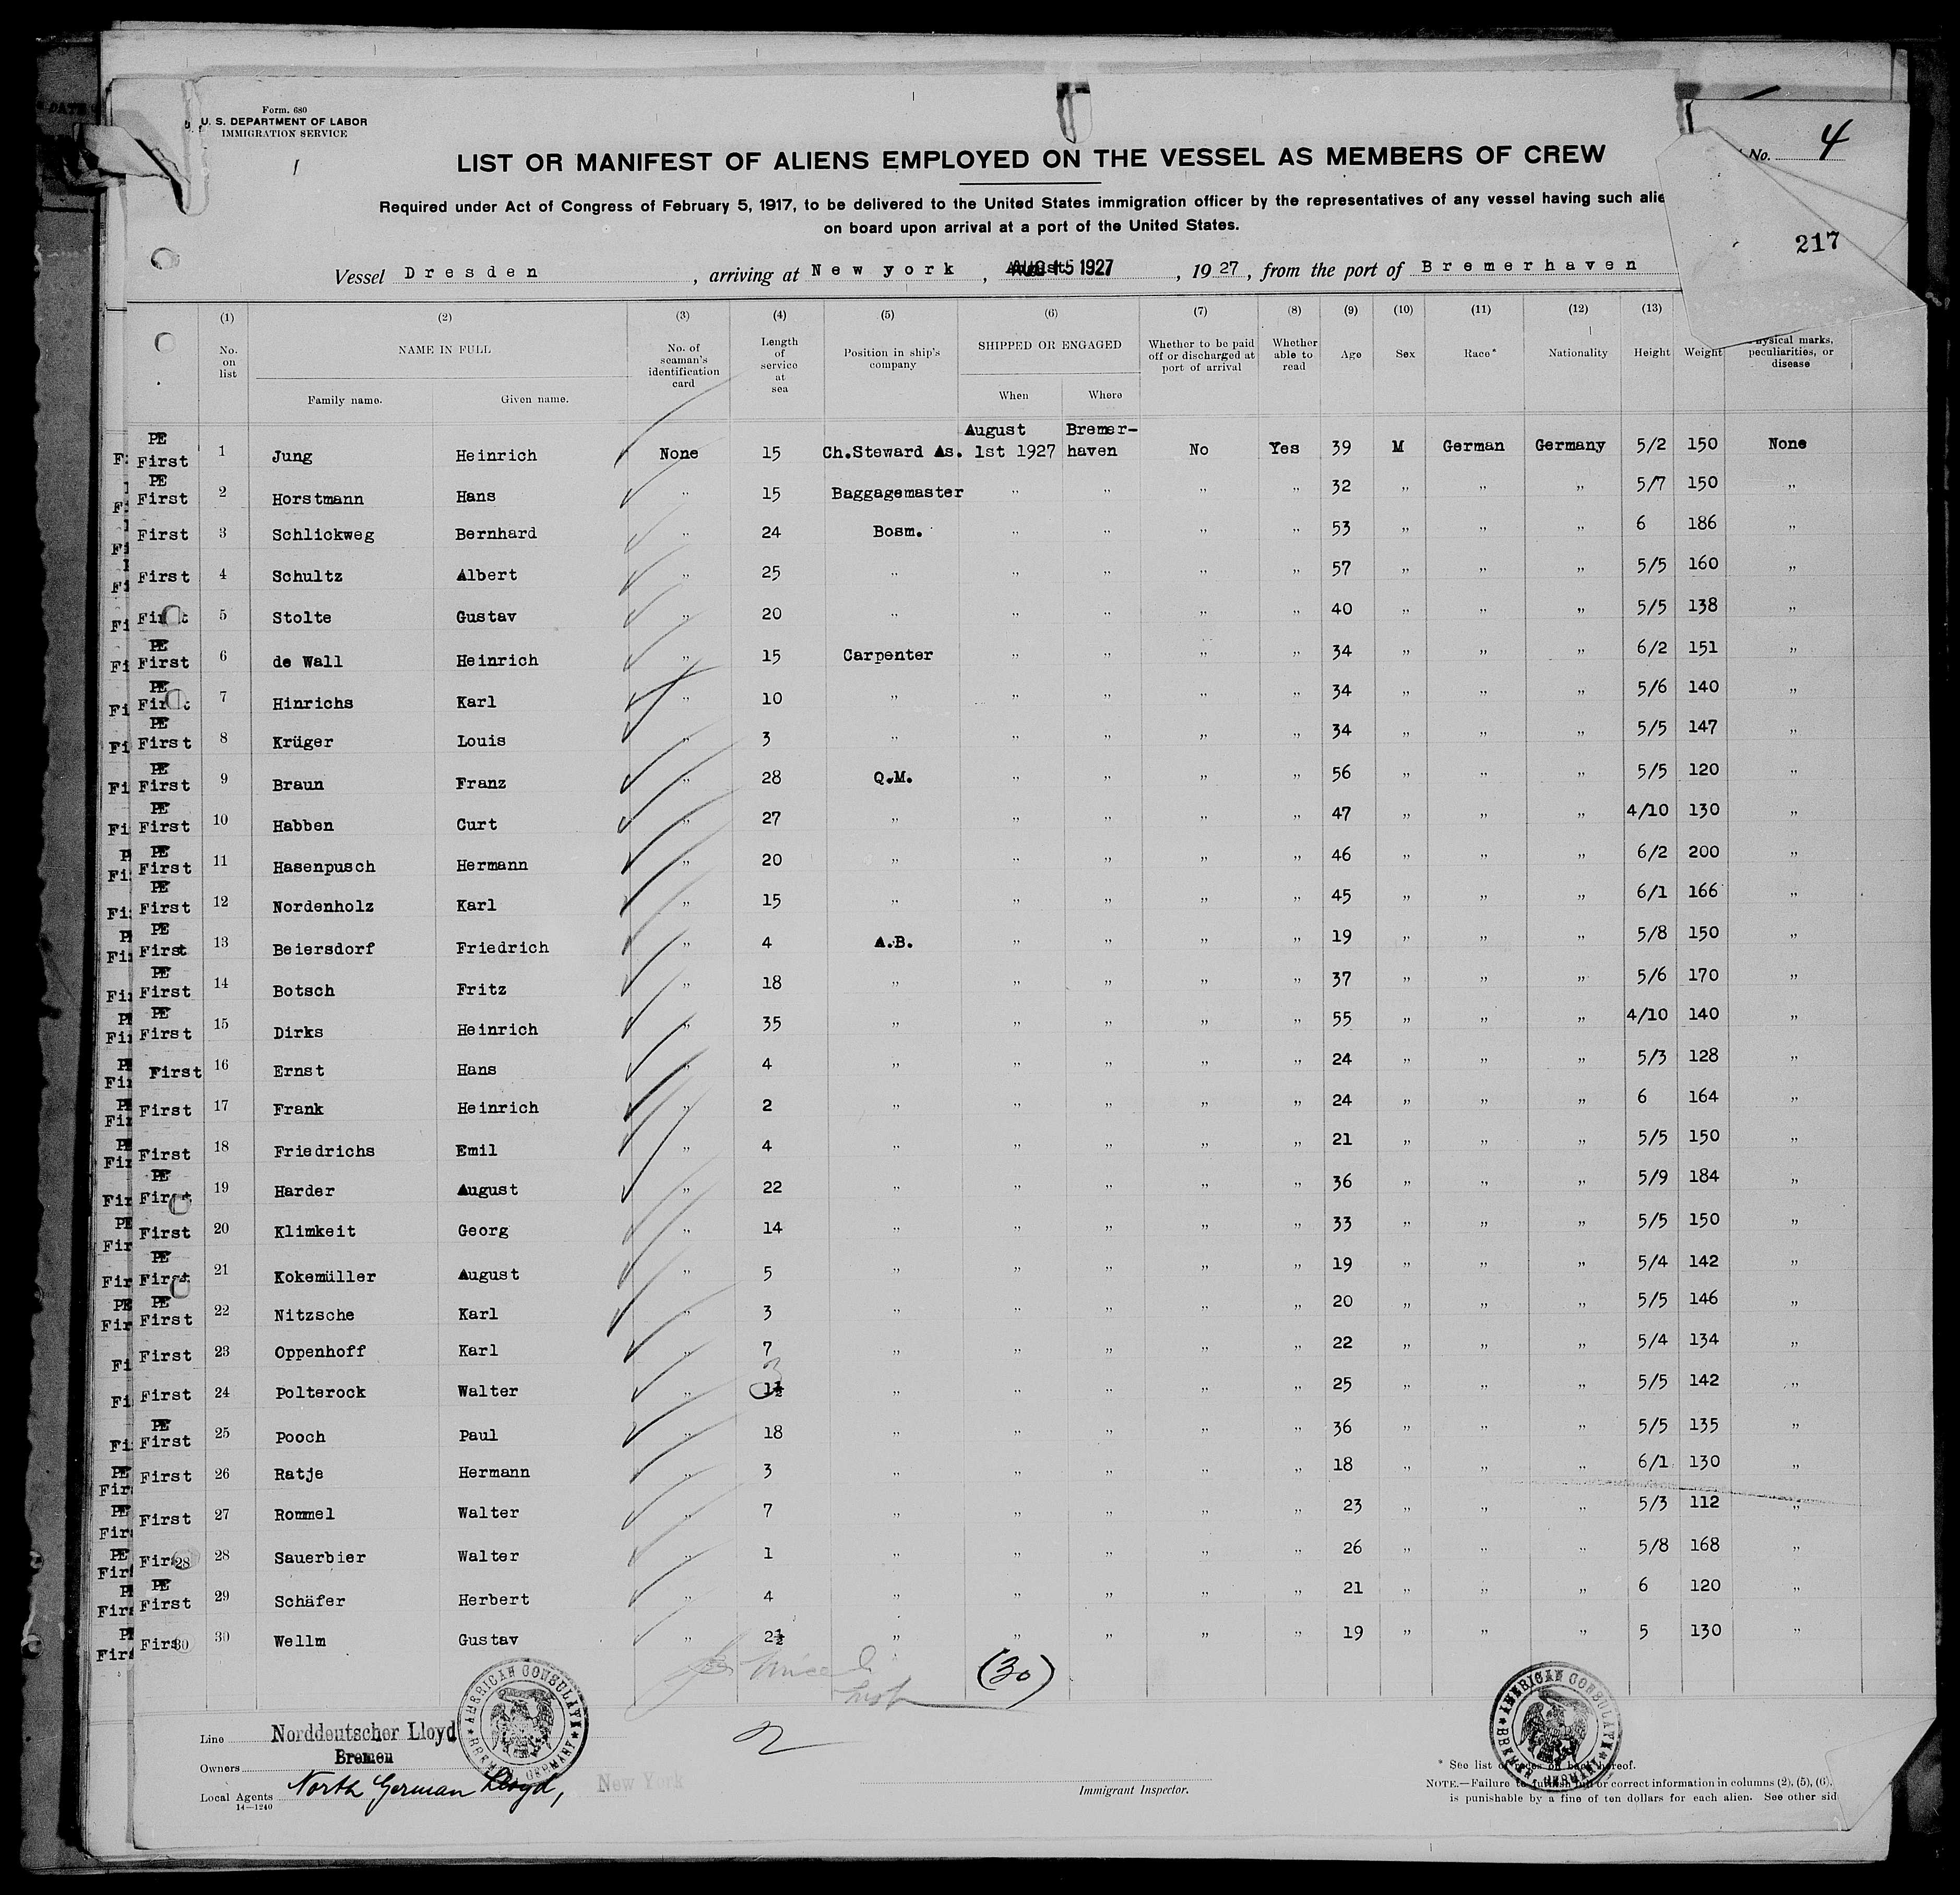 Form. 680
U. S. DEPARTMENT OF LABOR
IMMIGRATION SERVICE
No. 4
217
LIST OR MANIFEST OF ALIENS EMPLOYED ON THE VESSEL AS MEMBERS OF CREW
Required under Act of Congress of February 5, 1917, to be delivered to the United States immigration officer by the representatives of any vessel having such alie
on board upon arrival at a port of the United States.
Vessel Dresden, arriving at New york, AUG 15 1927, 1927, from the port of Bremerhaven
(1) (2) (3) (4) (5) (6) (7) (8) (9) (10) (11) (12) (13)
No. on list NAME IN FULL Family name. Given name. No. of seaman's identification card Length of service at sea Position in ship's company SHIPPED OR ENGAGED When Where Whether to be paid off or discharged at port of arrival Whether able to read Age Sex Race* Nationality Height Weight ysical marks, peculiarities, or disease
PE First 1 Jung Heinrich None 15 Ch.Steward As. August 1st 1927 Bremer-haven No Yes 39 M German Germany 5/2 150 None
PE First 2 Horstmann Hans " 15 Baggagemaster " " " " 32 " " " 5/7 150 "
First 3 Schlickweg Bernhard " 24 Bosm. " " " " 53 " " " 6 186 "
First 4 Schultz Albert " 25 " " " " " 57 " " " 5/5 160 "
First 5 Stolte Gustav " 20 " " " " " 40 " " " 5/5 138 "
PE First 6 de Wall Heinrich " 15 Carpenter " " " " 34 " " " 6/2 151 "
PE First 7 Hinrichs Karl " 10 " " " " " 34 " " " 5/6 140 "
PE First 8 Krüger Louis " 3 " " " " " 34 " " " 5/5 147 "
PE First 9 Braun Franz " 28 Q.M. " " " " 56 " " " 5/5 120 "
PE First 10 Habben Curt " 27 " " " " " 47 " " " 4/10 130 "
PE First 11 Hasenpusch Hermann " 20 " " " " " 46 " " " 6/2 200 "
PE First 12 Nordenholz Karl " 15 " " " " " 45 " " " 6/1 166 "
PE First 13 Beiersdorf Friedrich " 4 A.B. " " " " 19 " " " 5/8 150 "
PE First 14 Botsch Fritz " 18 " " " " " 37 " " " 5/6 170 "
PE First 15 Dirks Heinrich " 35 " " " " " 55 " " " 4/10 140 "
First 16 Ernst Hans " 4 " " " " " 24 " " " 5/3 128 "
First 17 Frank Heinrich " 2 " " " " " 24 " " " 6 164 "
First 18 Friedrichs Emil " 4 " " " " " 21 " " " 5/5 150 "
PE First 19 Harder August " 22 " " " " " 36 " " " 5/9 184 "
First 20 Klimkeit Georg " 14 " " " " " 33 " " " 5/5 150 "
PE First 21 Kokemüller August " 5 " " " " " 19 " " " 5/4 142 "
PE First 22 Nitzsche Karl " 3 " " " " " 20 " " " 5/5 146 "
First 23 Oppenhoff Karl " 7 " " " " " 22 " " " 5/4 134 "
First 24 Polterock Walter " 1½ " " " " " 25 " " " 5/5 142 "
PE First 25 Pooch Paul " 18 " " " " " 36 " " " 5/5 135 "
First 26 Ratje Hermann " 3 " " " " " 18 " " " 6/1 130 "
First 27 Rommel Walter " 7 " " " " " 23 " " " 5/3 112 "
First 28 Sauerbier Walter " 1 " " " " " 26 " " " 5/8 168 "
PE First 29 Schäfer Herbert " 4 " " " " " 21 " " " 6 120 "
First 30 Wellm Gustav " 2½ " " " " " 19 " " " 5 130 "
(30)
AMERICAN CONSULATE BREMEN GERMANY
AMERICAN CONSULATE BREMEN GERMANY
Line Norddeutscher Lloyd
Bremen
Owners
Local Agents North German Lloyd, New York
14—1240
Immigrant Inspector.
* See list of races on back hereof.
NOTE.—Failure to furnish full or correct information in columns (2), (5), (6),
is punishable by a fine of ten dollars for each alien. See other sid